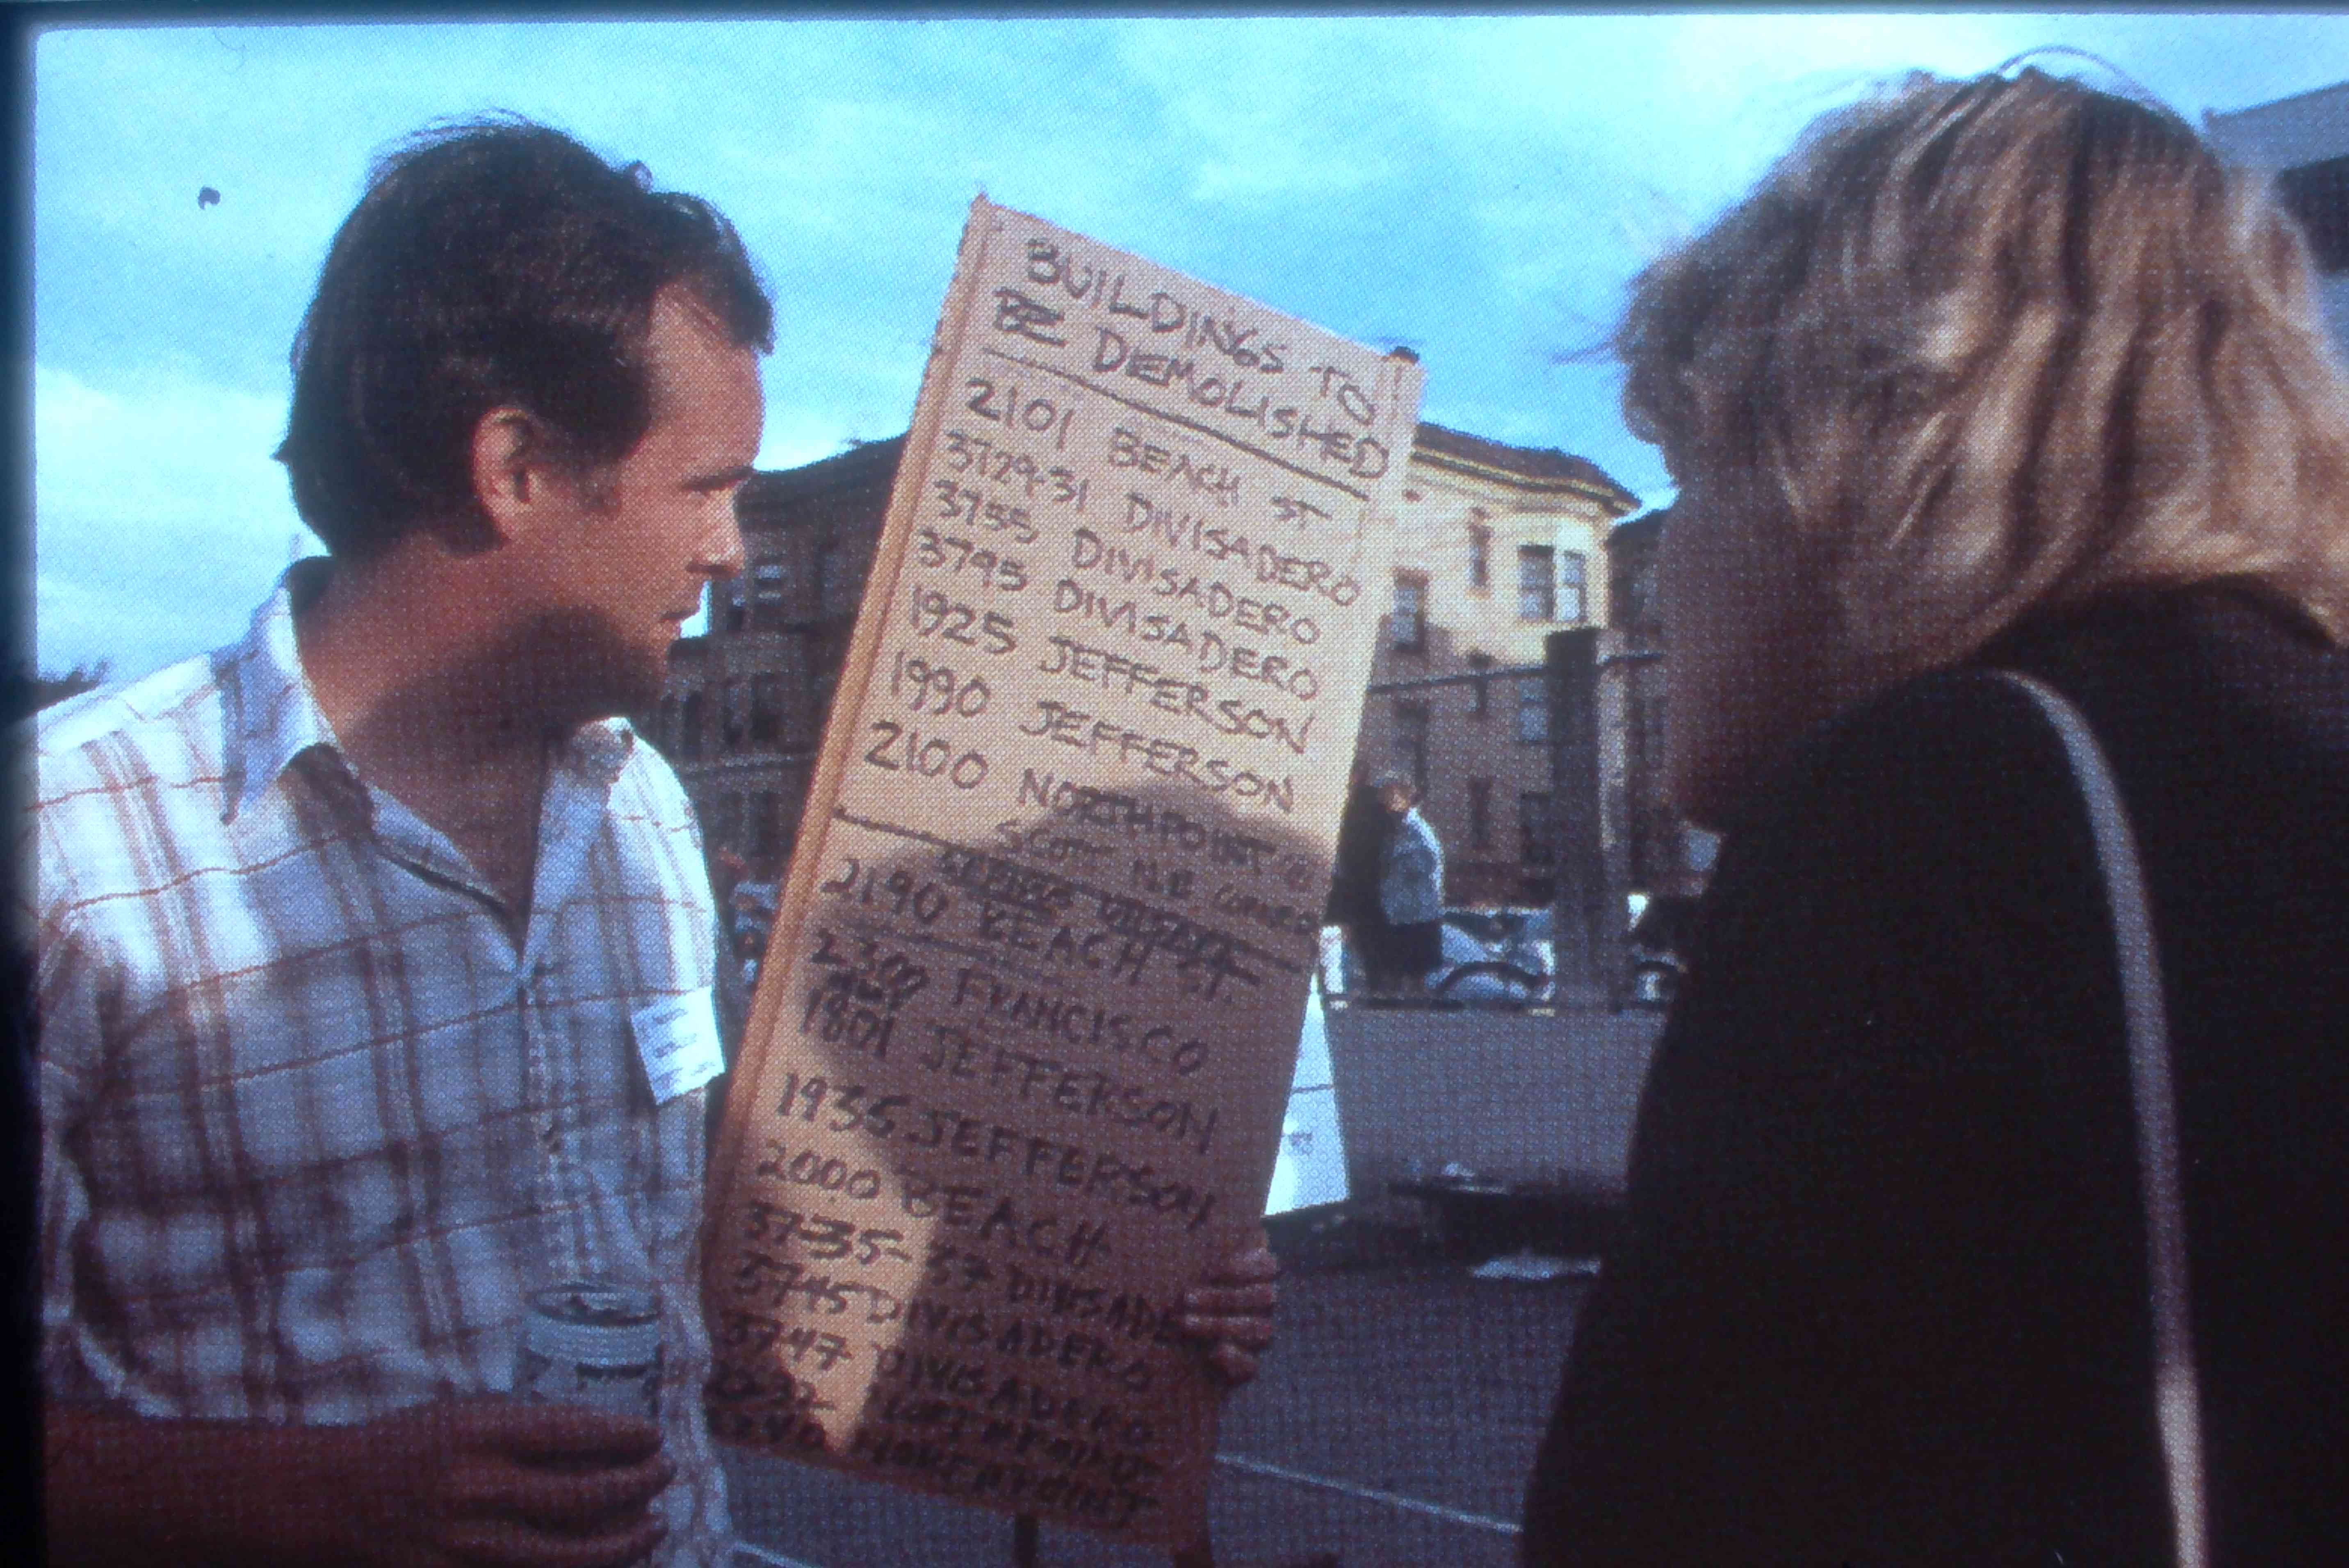 BUILDINGS TO
BE DEMOLISHED
2101 BEACH ST
3729-31 DIVISADERO
3755 DIVISADERO
3795 DIVISADERO
1925 JEFFERSON
1990 JEFFERSON
2100 NORTHPOINT @
SCOTT N.E. CORNER
2190 BEACH ST.
2300 FRANCISCO
1801 JEFFERSON
1935 JEFFERSON
2000 BEACH
3735-37 DIVISADE
3745 DIVISADERO
3747 DIVISADERO